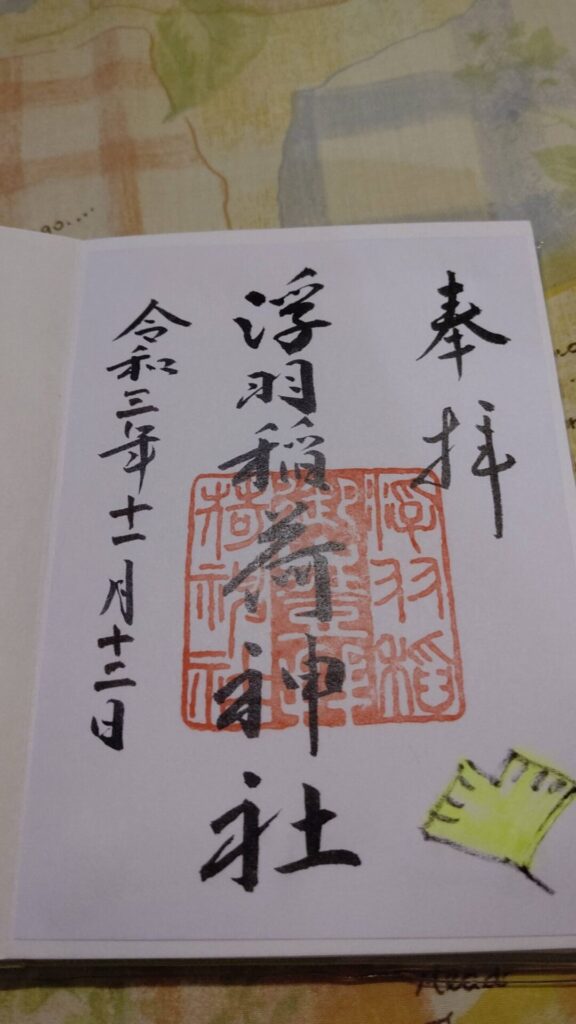 奉拝
浮羽稲荷神社
令和三年十一月十二日
浮羽稲
荷神社